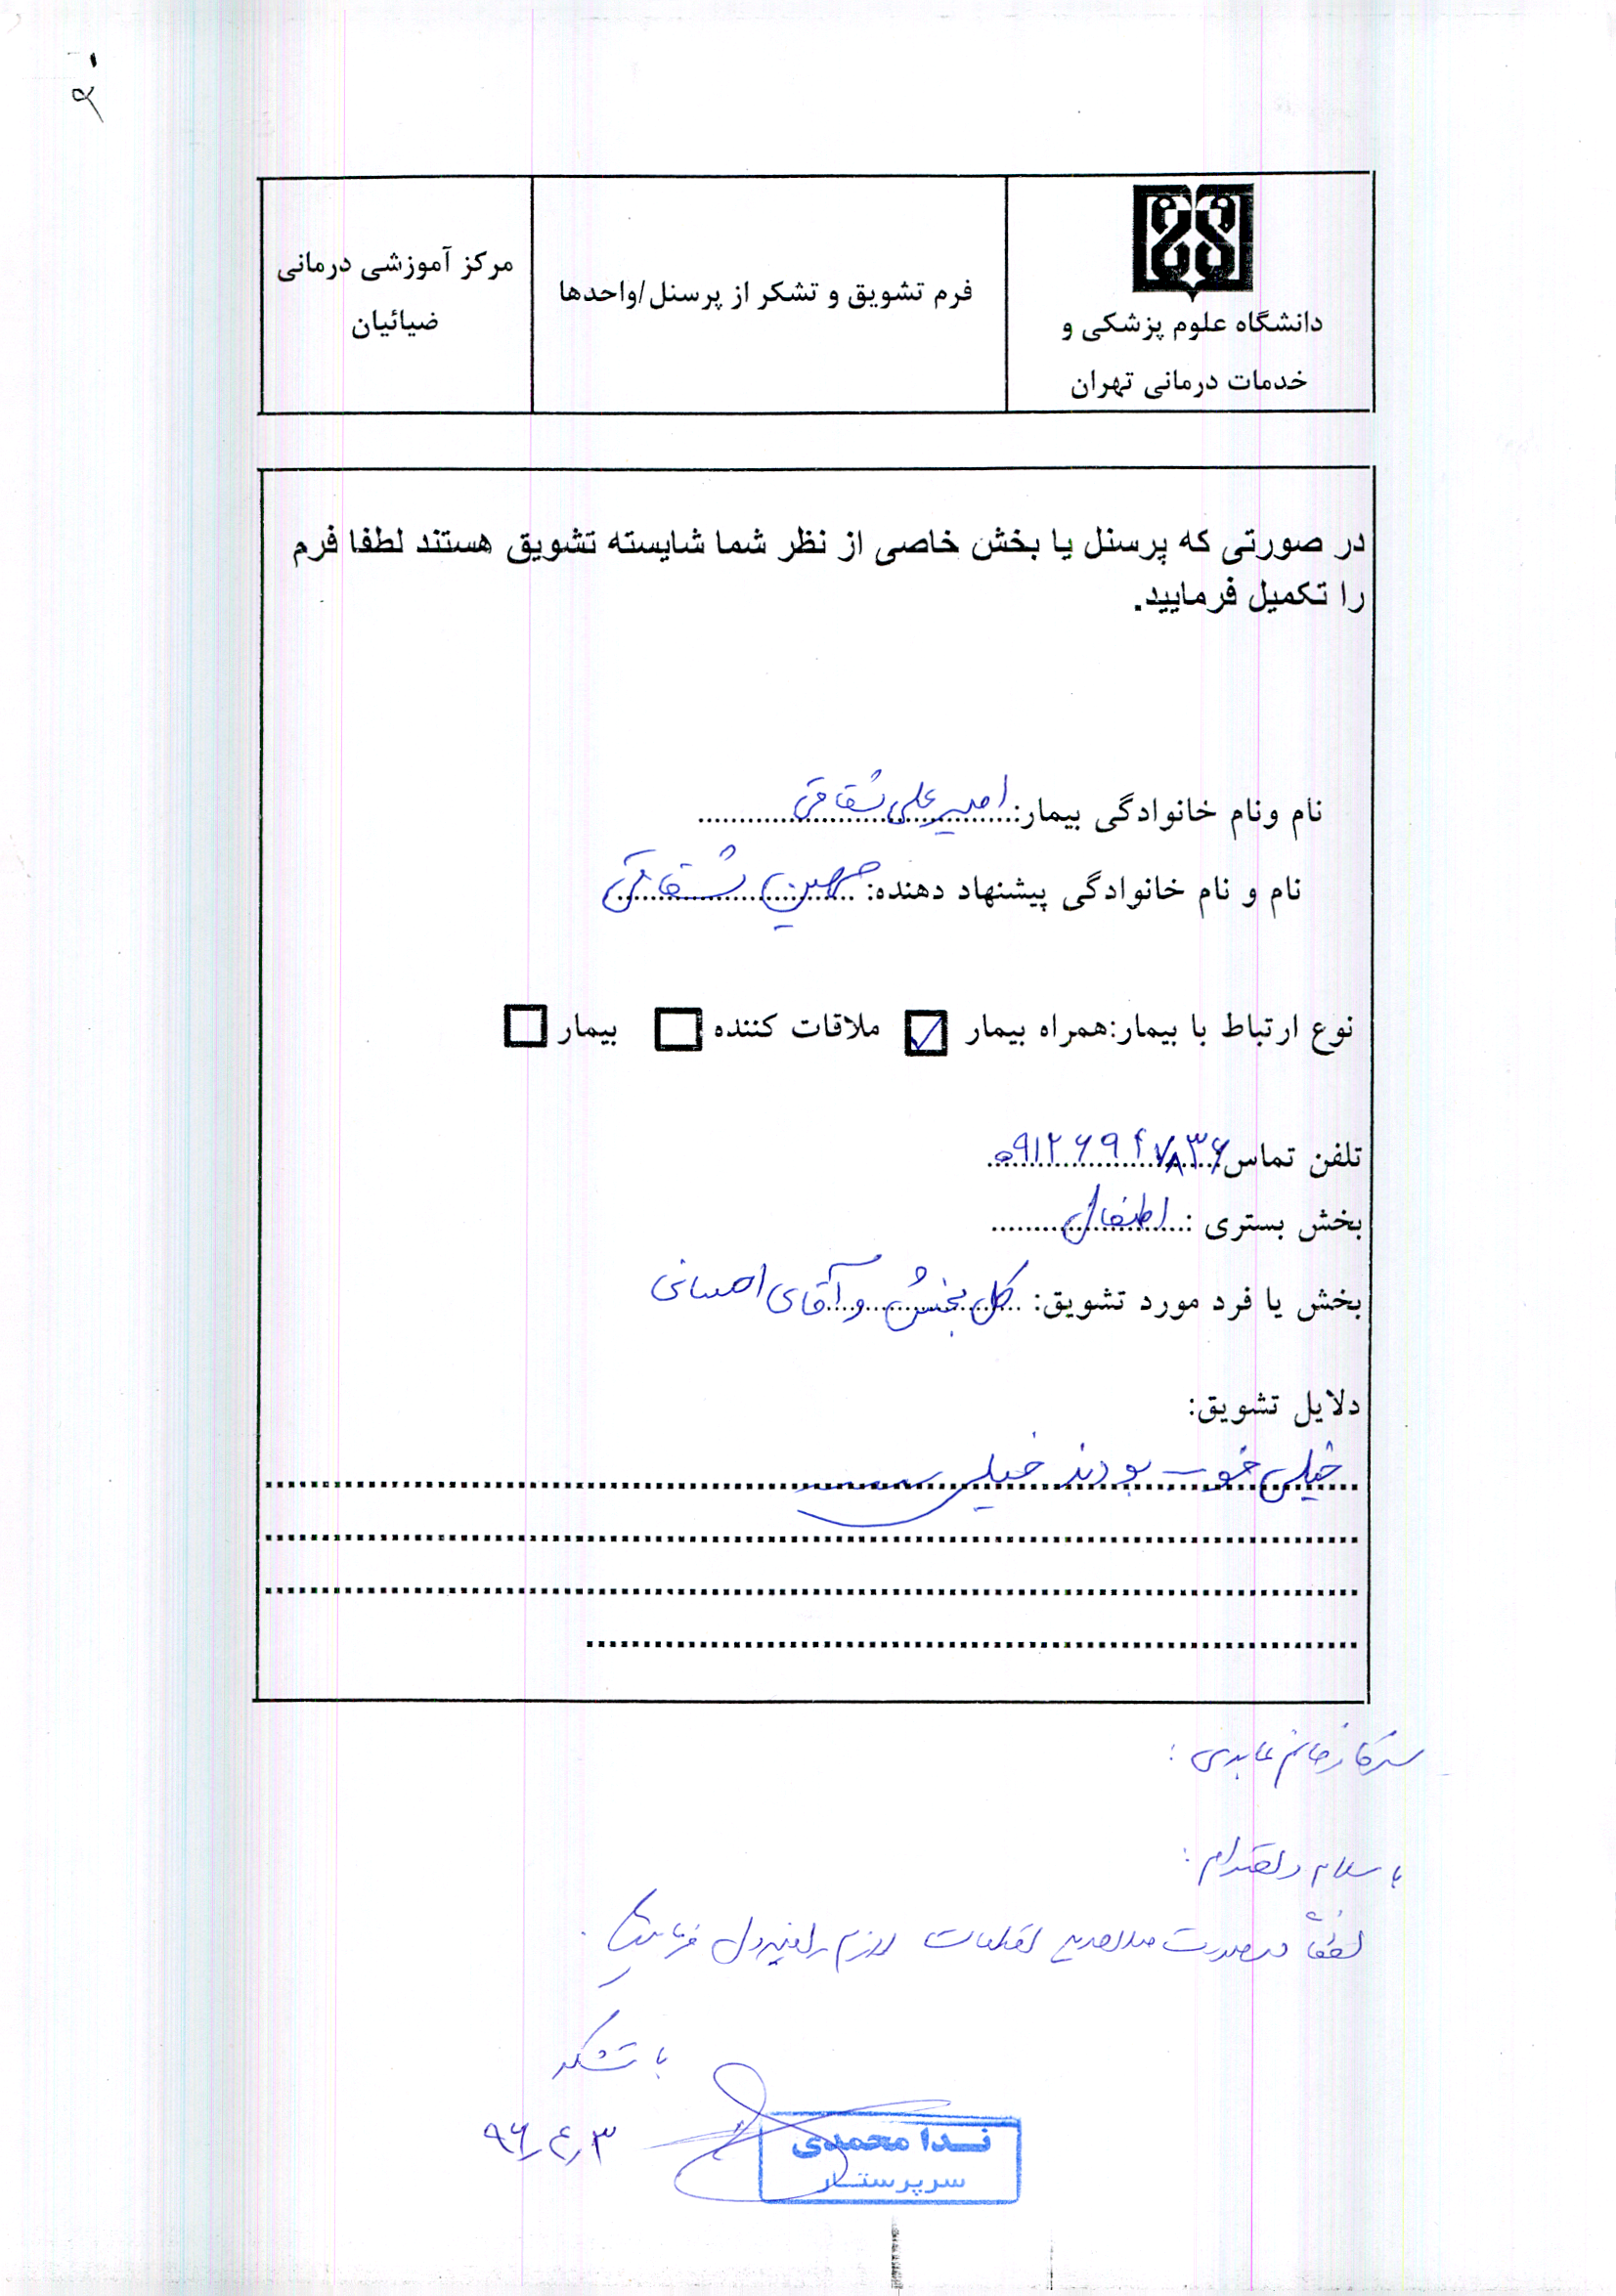 دانشگاه علوم پزشکی و
خدمات درمانی تهران
فرم تشویق و تشکر از پرسنل/واحدها
مرکز آموزشی درمانی
ضیائیان
در صورتی که پرسنل یا بخش خاصی از نظر شما شایسته تشویق هستند لطفا فرم
را تکمیل فرمایید.
نام ونام خانوادگی بیمار: امیرعلی شقاقی
نام و نام خانوادگی پیشنهاد دهنده: شقاقی
نوع ارتباط با بیمار:همراه بیمار ملاقات کننده بیمار
تلفن تماس: ۰۹۱۲۶۹۴۷۸۳۶
بخش بستری : اطفال
بخش یا فرد مورد تشویق: کل بخش و آقای احسانی
دلایل تشویق:
خیلی خوب بودند خیلی
سرکار خانم عابدی :
با سلام و احترام :
لطفاً در صورت صلاحدید اقدامات لازم را مبذول فرمایید.
با تشکر
۹۶/۴/۳
ندا محمدی
سرپرستار